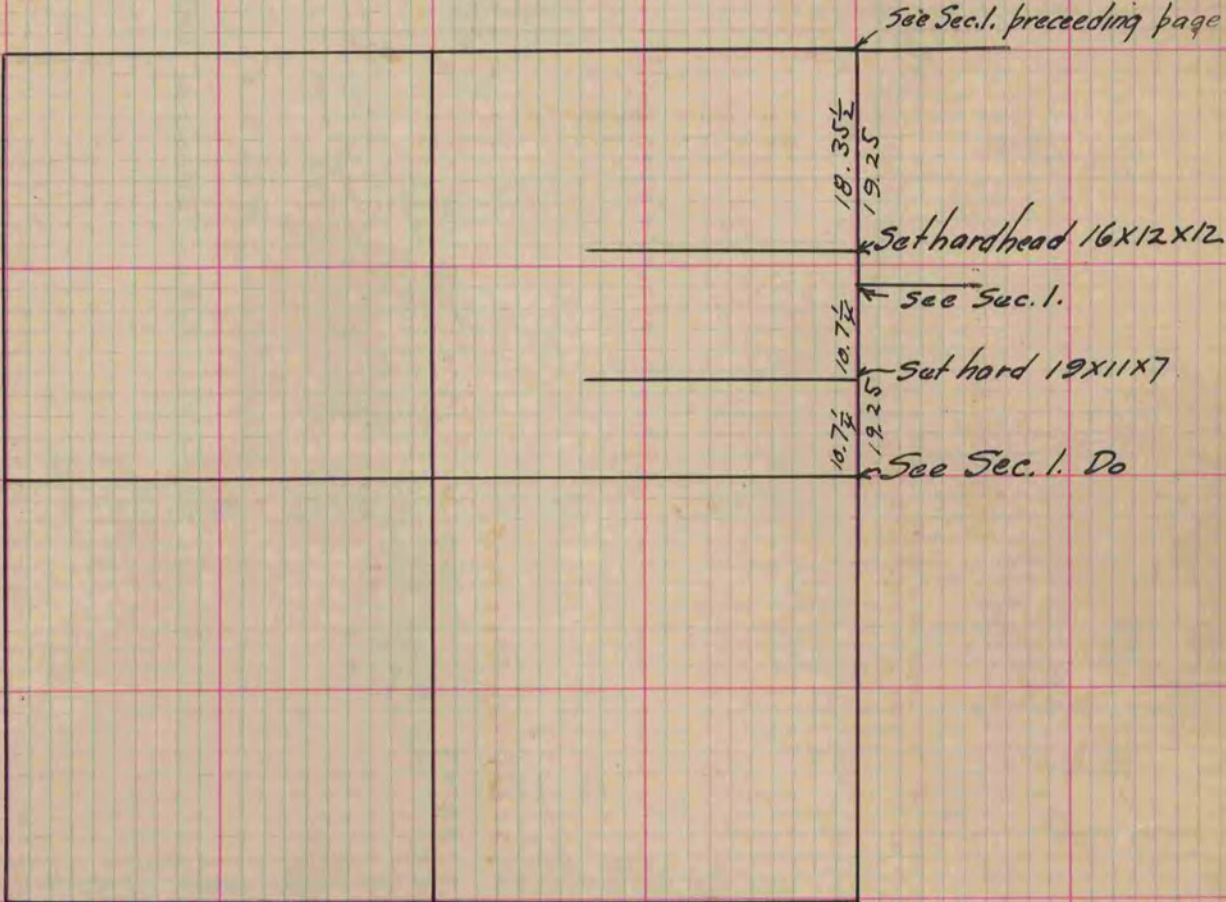 See Sec.1. preceeding page
18.35½
19.25
Set hardhead 16X12X12
See Sec.1.
10.7¼
Set hard 19X11X7
10.7¼
19.25
See Sec.1. Do